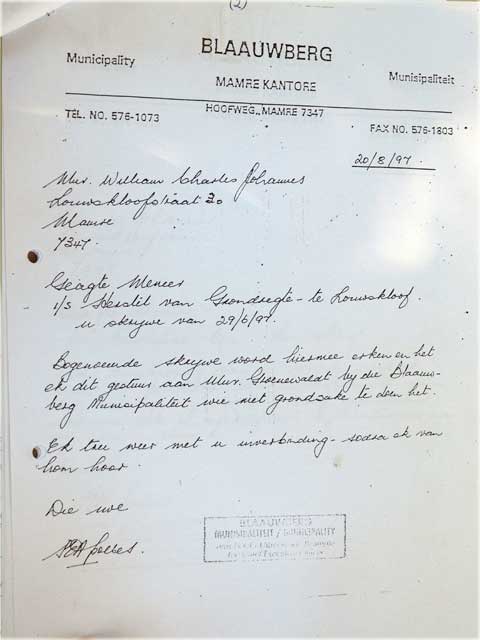 (2)
BLAAUWBERG
Municipality
Munisipaliteit
MAMRE KANTORE
HOOFWEG., MAMRE 7347
TEL. NO. 576-1073
FAX NO. 576-1803
20/8/97.
Mnr. William Charles Johannes
Louwskloofstraat 20
Mamre
7347.
Geagte Meneer
i/s Herstel van Grondregte - te Louwskloof.
u skrywe van 29/6/97
Bogenoemde skrywe word hiermee erken en het
ek dit gestuur aan Mnr. Groenewaldt by die Blaauw-
berg Munisipaliteit wie met grondsake te doen het.
Ek tree weer met u in verbinding - sodra ek van
hom hoor.
Die uwe
BLAAUWBERG
MUNISIPALITEIT / MUNICIPALITY